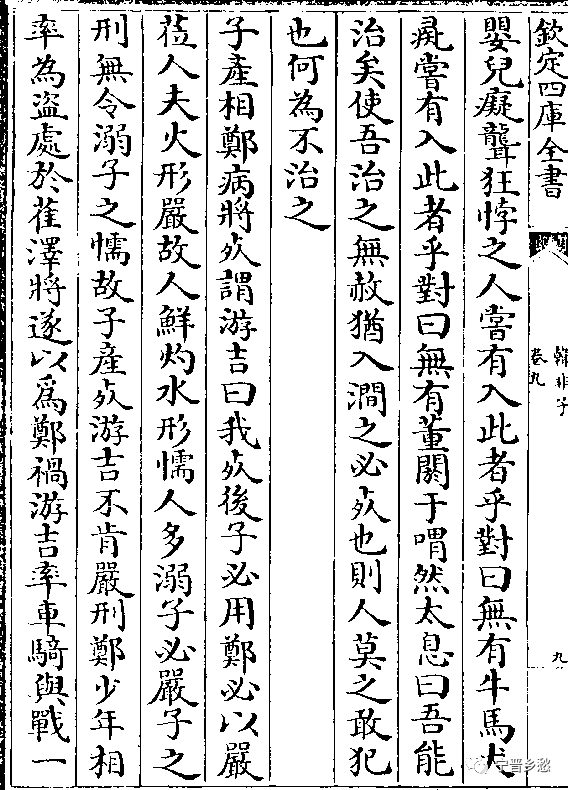 欽定四庫全書
韓非子
卷九
九
嬰兒癡聾狂悖之人嘗有入此者乎對曰無有牛馬犬
彘嘗有入此者乎對曰無有董閼于喟然太息曰吾能
治矣使吾治之無赦猶入澗之必死也則人莫之敢犯
也何為不治之
子產相鄭病將死謂游吉曰我死後子必用鄭必以嚴
莅人夫火形嚴故人鮮灼水形懦人多溺子必嚴子之
刑無令溺子之懦故子產死游吉不肯嚴刑鄭少年相
率為盜處於萑澤將遂以爲鄭禍游吉率車騎與戰一
宁晋乡愁